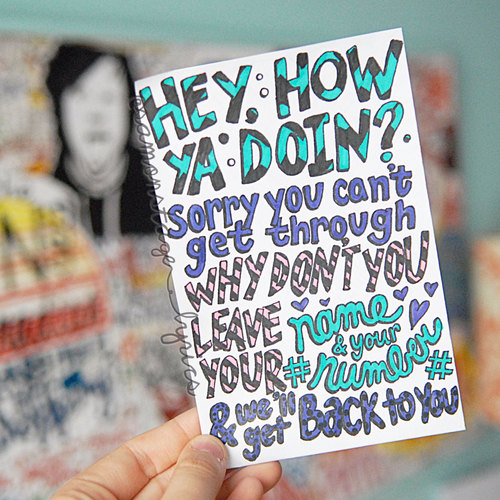 HEY, HOW
YA DOIN?
sorry you can't
get through
WHY DON'T YOU
LEAVE name
YOUR & your
#number#
& we'll
get BACK to you